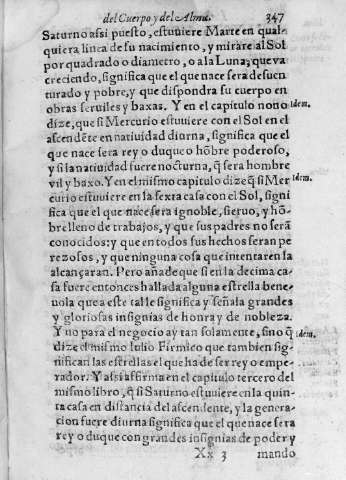 del Cuerpo y del Alma. 347
Saturno assi puesto, estuuiere Marte en qual-
quiera linea de su nacimiento, y mirare al Sol
por quadrado o diametro, o a la Luna, que va
creciendo, significa que el que nace sera desuen
turado y pobre, y que dispondra su cuerpo en
obras seruiles y baxas. Y en el capitulo nono Idem.
dize, que si Mercurio estuuiere con el Sol en el
ascendẽte en natiuidad diurna, significa que el
que nace sera rey o duque o hõbre poderoso,
y si la natiuidad fuere nocturna, q̃ sera hombre
vil y baxo. Y en el mismo capitulo dize q̃ si Mer Idem.
curio estuuiere en la sexta casa con el Sol, signi
fica que el que nace sera ignoble, sieruo, y hõ-
bre lleno de trabajos, y que sus padres no serã
conocidos: y que en todos sus hechos seran pe
rezosos, y que ninguna cosa que intentaren la
alcançaran. Pero añade que si en la decima ca-
sa fuere entonces hallada alguna estrella bene-
uola que a este talle significa y señala grandes
y gloriosas insignias de honra y de nobleza.
Y no para el negocio ay tan solamente, sino q̃ Idem.
dize el mismo Iulio Firmico que tambien sig-
nifican las estrellas el que ha de ser rey o empe-
rador. Y assi affirma en el capitulo tercero del
mismo libro, q̃ si Saturno estuuiere en la quin-
ta casa en distancia del ascendente, y la genera-
cion fuere diurna significa que el que nace sera
rey o duque con grandes insignias de poder y
Xx 3 mando